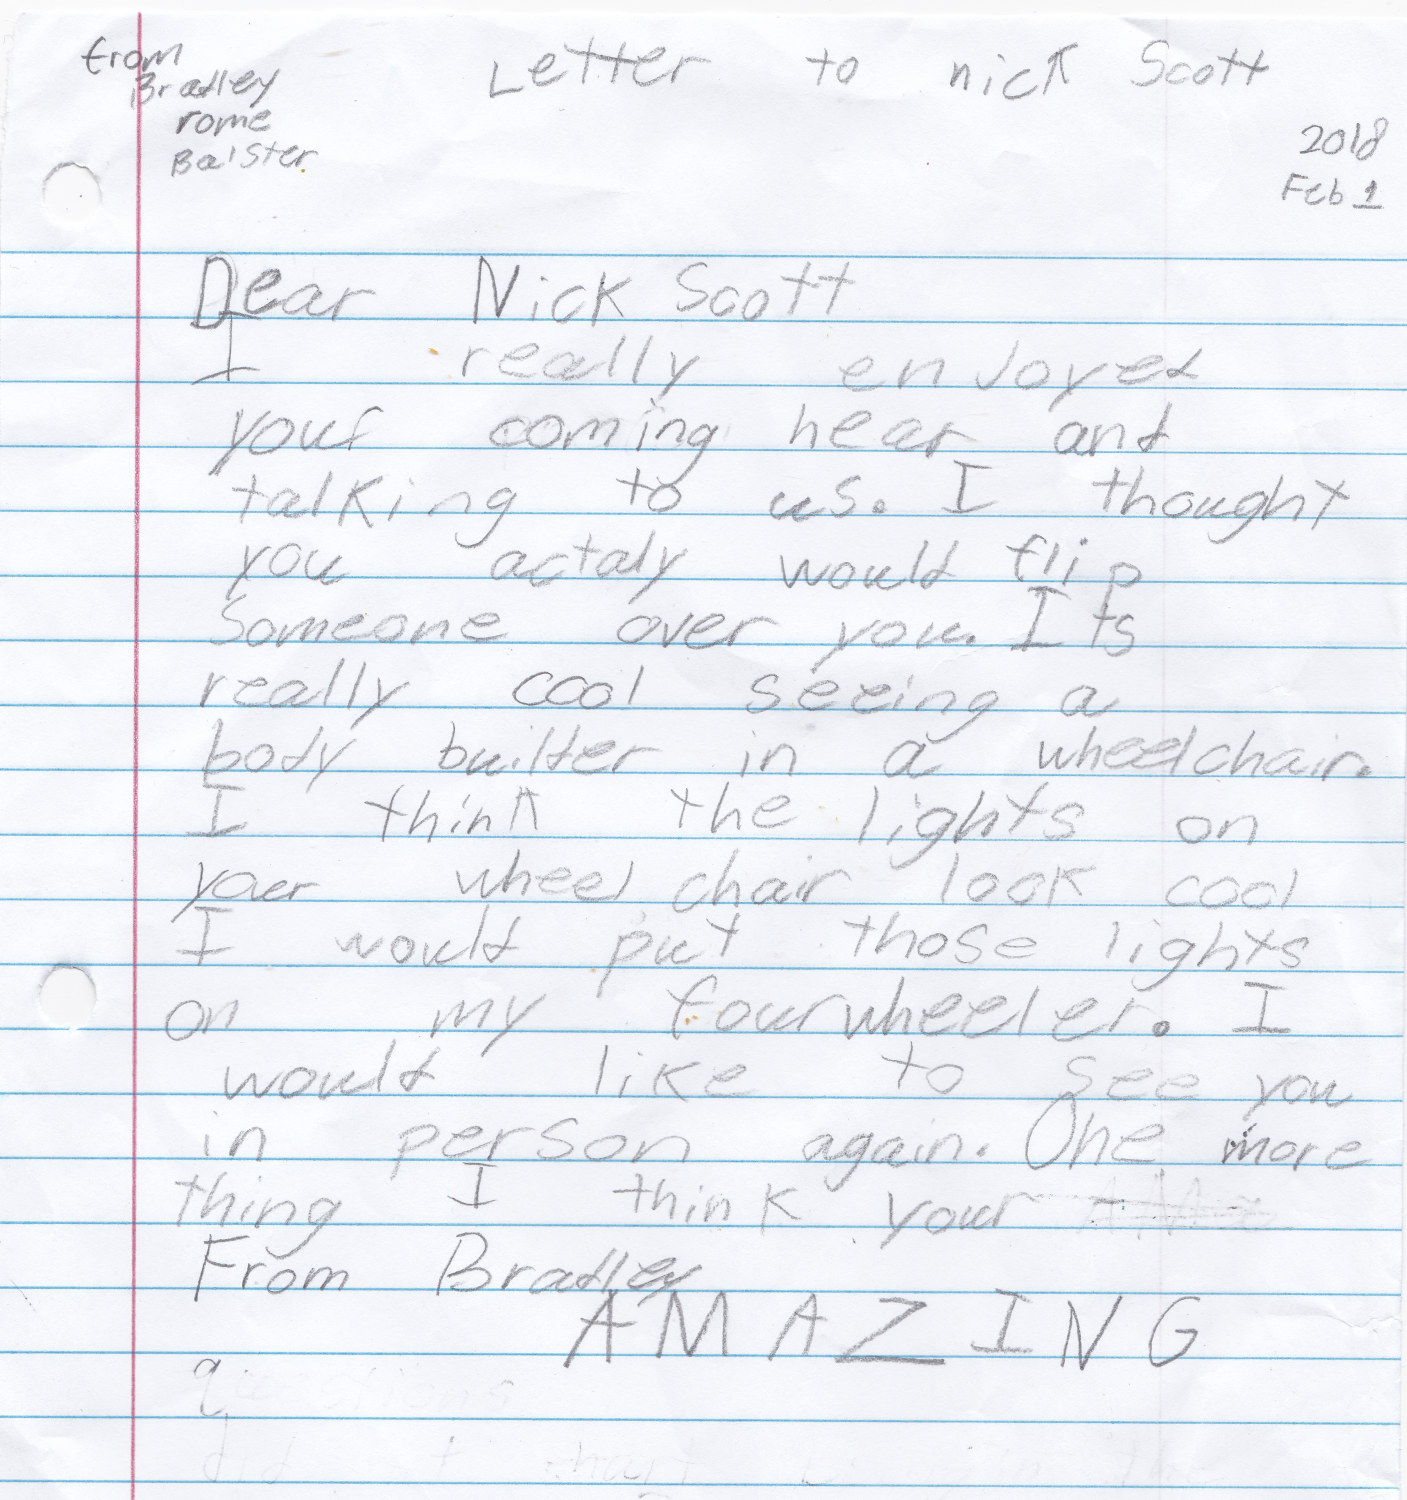 from
Bradley
rome
Balster
Letter to nick Scott
2018
Feb 1
Dear Nick Scott
I really enJoyed
your coming hear and
talking to us. I thought
you actaly would flip
Someone over you. Its
really cool seeing a
body builder in a wheelchair.
I think the lights on
youer wheel chair look cool
I would put those lights
on my fourwheeler. I
would like to see you
in person again. One more
thing I think your
From Bradley
AMAZING
questions
did